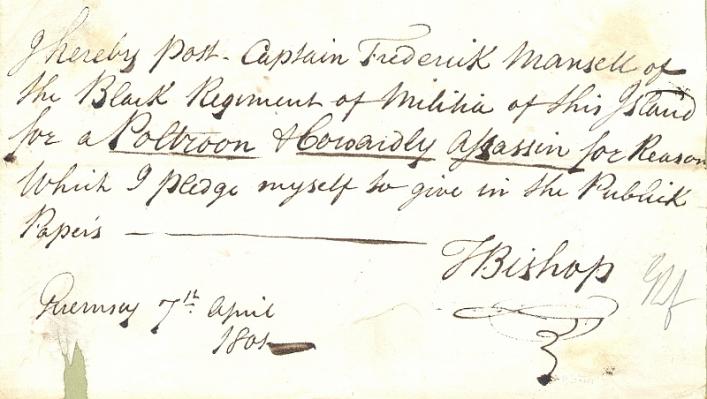 I hereby Post - Captain Frederick Mansell of
the Black Regiment of Militia of this Island
for a Poltroon & Cowardly Assassin for Reason
Which I pledge myself to give in the Publick
Papers
T Bishop
Guernsey 7th April
1801